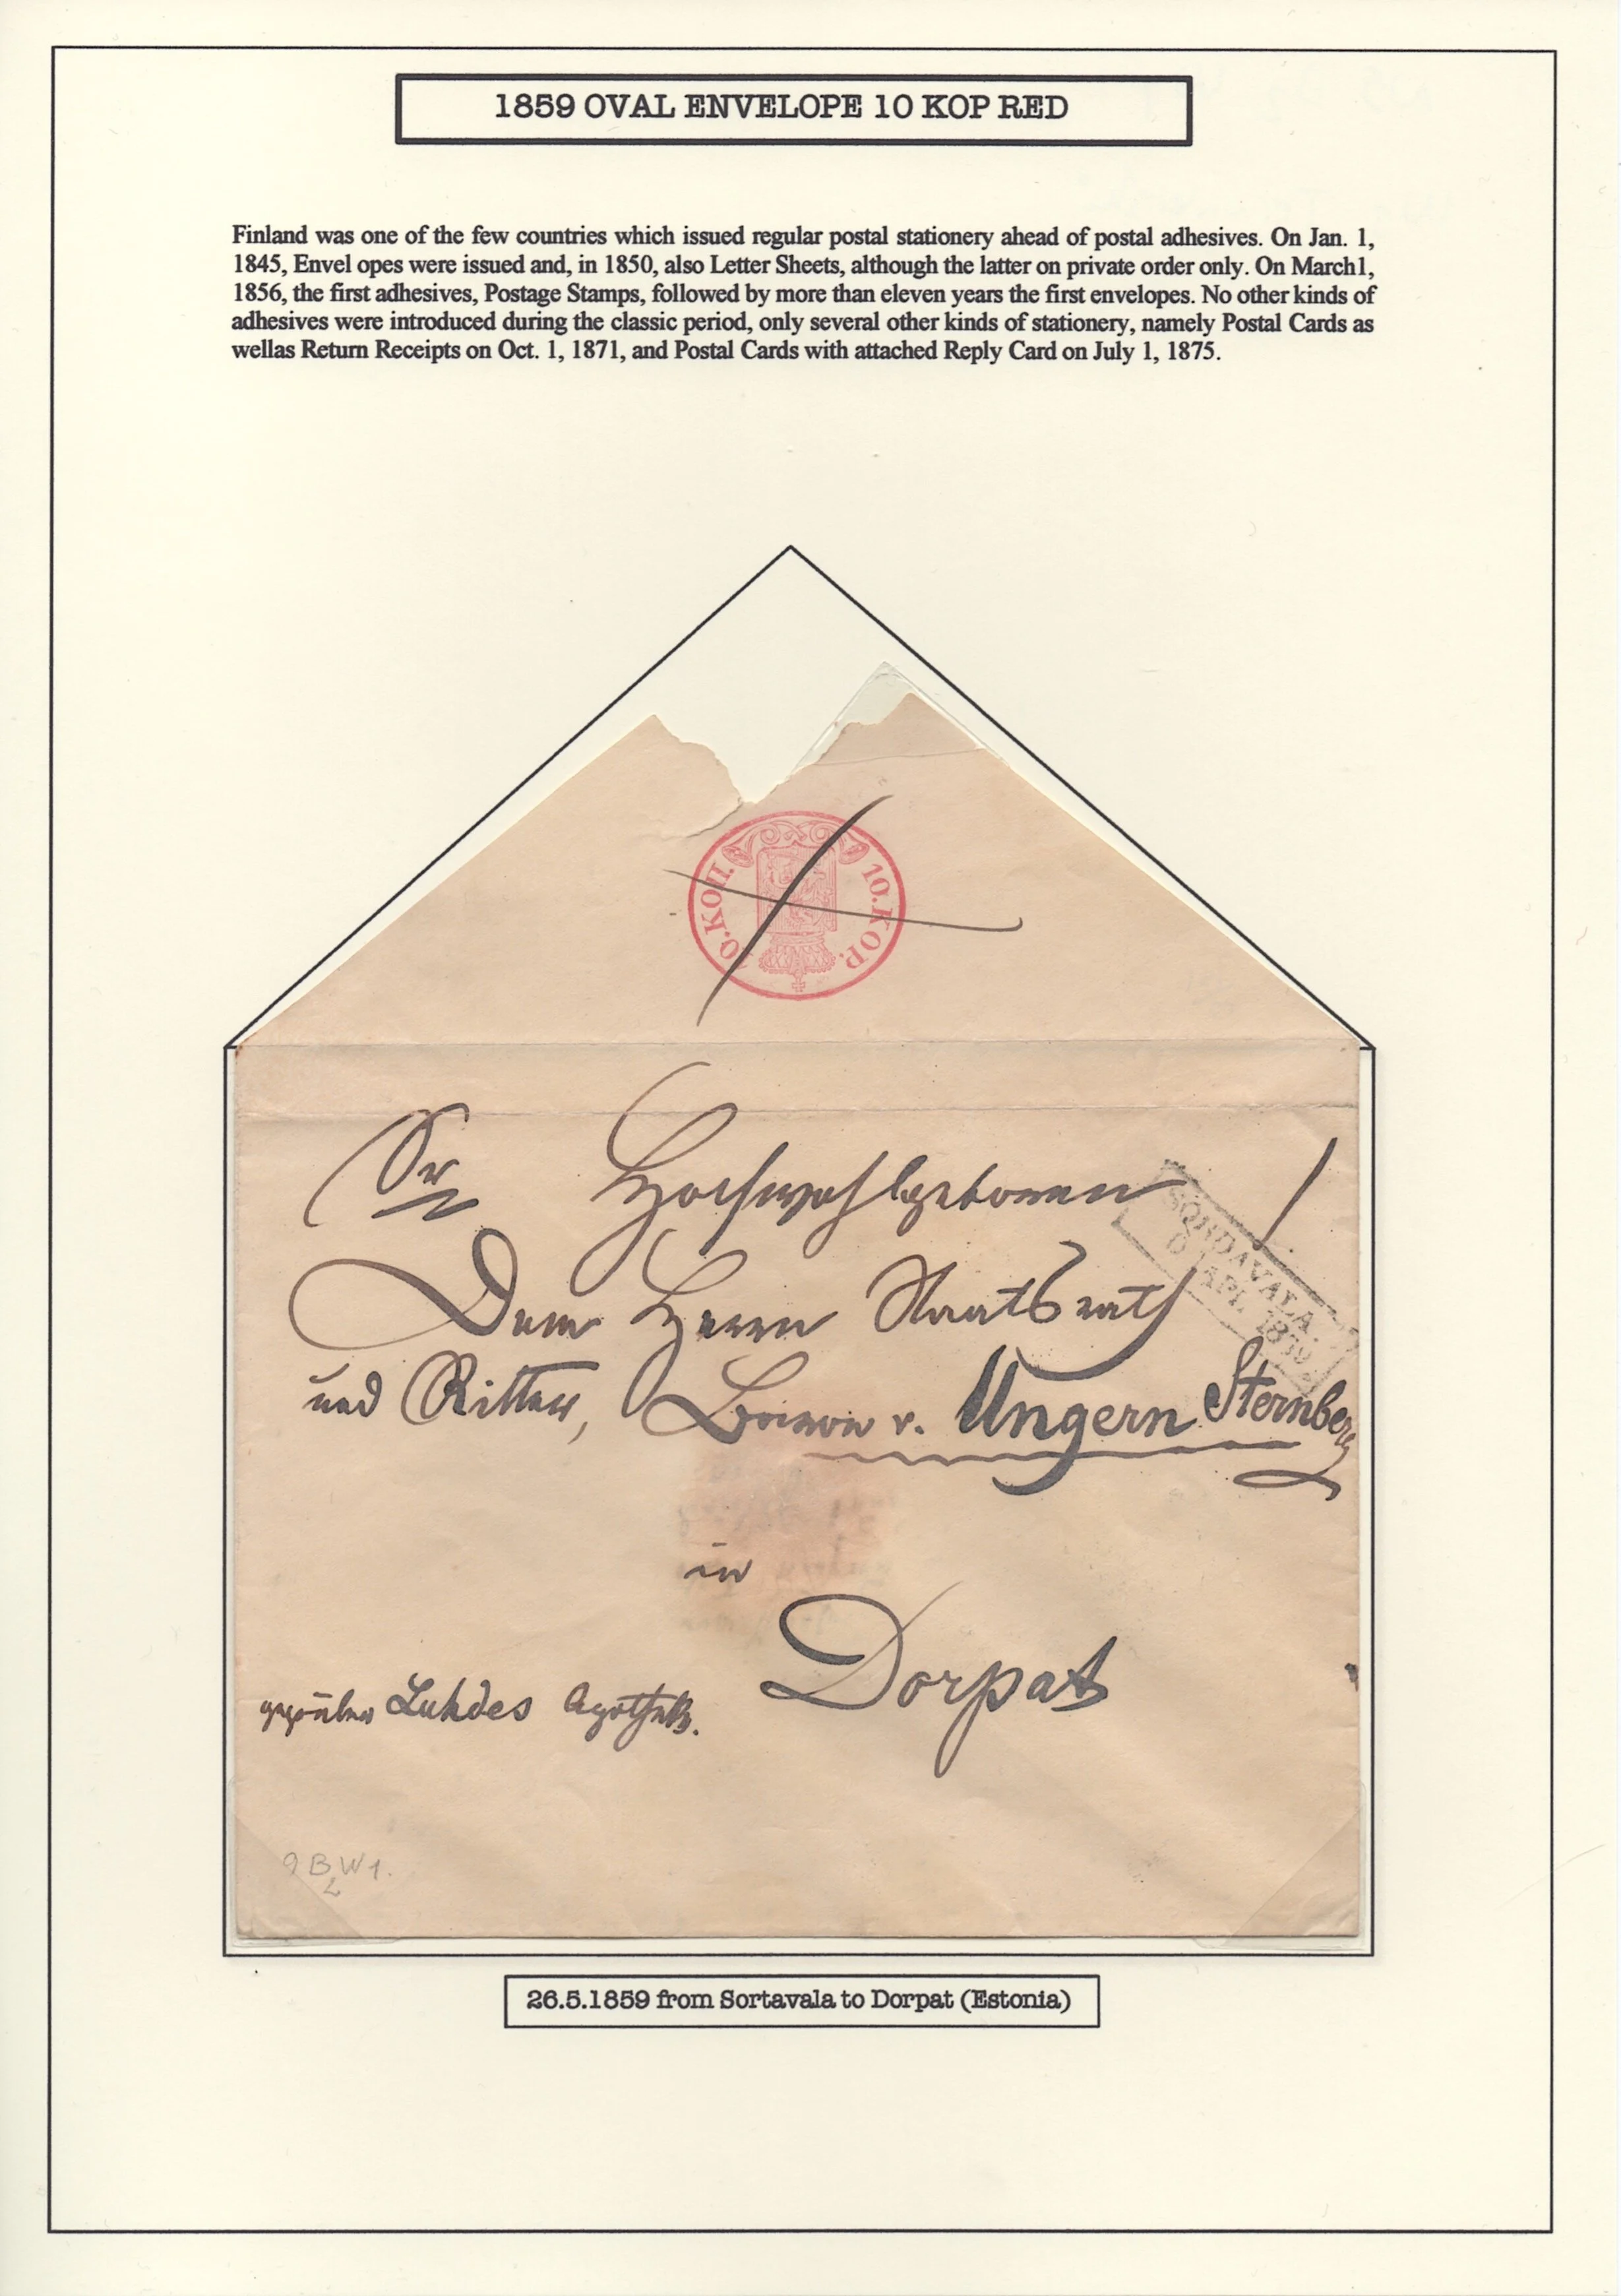 1859 OVAL ENVELOPE 10 KOP RED
Finland was one of the few countries which issued regular postal stationery ahead of postal adhesives. On Jan. 1,
1845, Envel opes were issued and, in 1850, also Letter Sheets, although the latter on private order only. On March1,
1856, the first adhesives, Postage Stamps, followed by more than eleven years the first envelopes. No other kinds of
adhesives were introduced during the classic period, only several other kinds of stationery, namely Postal Cards as
wellas Return Receipts on Oct. 1, 1871, and Postal Cards with attached Reply Card on July 1, 1875.
10.КОП. 10.KOP.
Sr Hochwohlgeboren
SORDAVALA.
APL. 1859
Dem Herrn Staatsrath
und Ritter, Baron v. Ungern Sternberg
in
Dorpat
gegenüber Luhdes Apotheke.
9 B W 1.
26.5.1859 from Sortavala to Dorpat (Estonia)